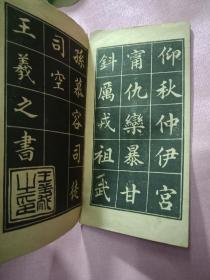 仰秋仲伊宮
甯仇欒暴甘
鈄厲戎祖武
孫慕容司徒
司空
王羲之書
王羲之印